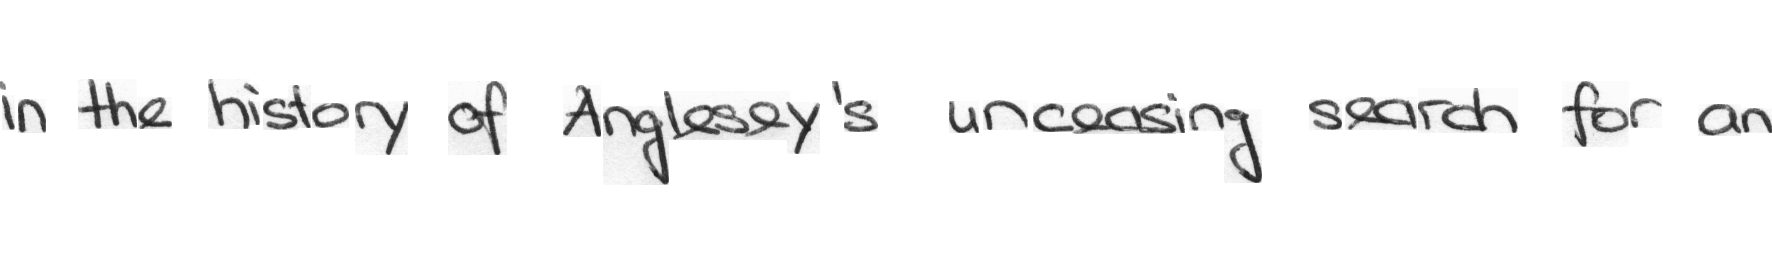 in the history of Anglesey's unceasing search for an